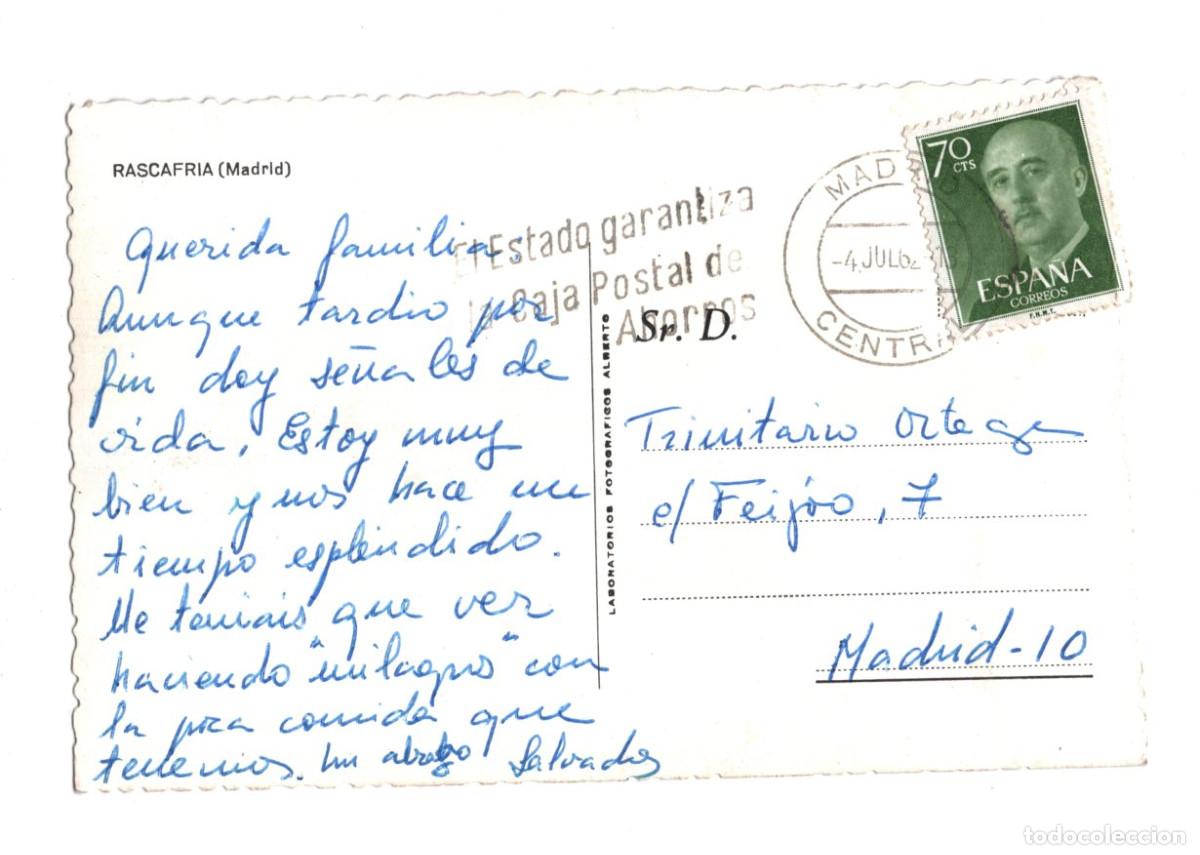 RASCAFRIA (Madrid)
Querida familia.
Aunque tardio por
fin doy señales de
vida. Estoy muy
bien y nos hace un
tiempo esplendido.
Me teniais que ver
haciendo "milagros" con
la poca comida que
tenemos. Un abrazo Salvador
El Estado garantiza
la Caja Postal de
Ahorros
MADRID
-4.JUL62
CENTRAL
70
CTS
ESPAÑA
CORREOS
F.N.M.T.
LABORATORIOS FOTOGRAFICOS ALBERTO
Sr. D.
Trinitario Ortega
c/ Feijóo, 7
Madrid-10
todocoleccion